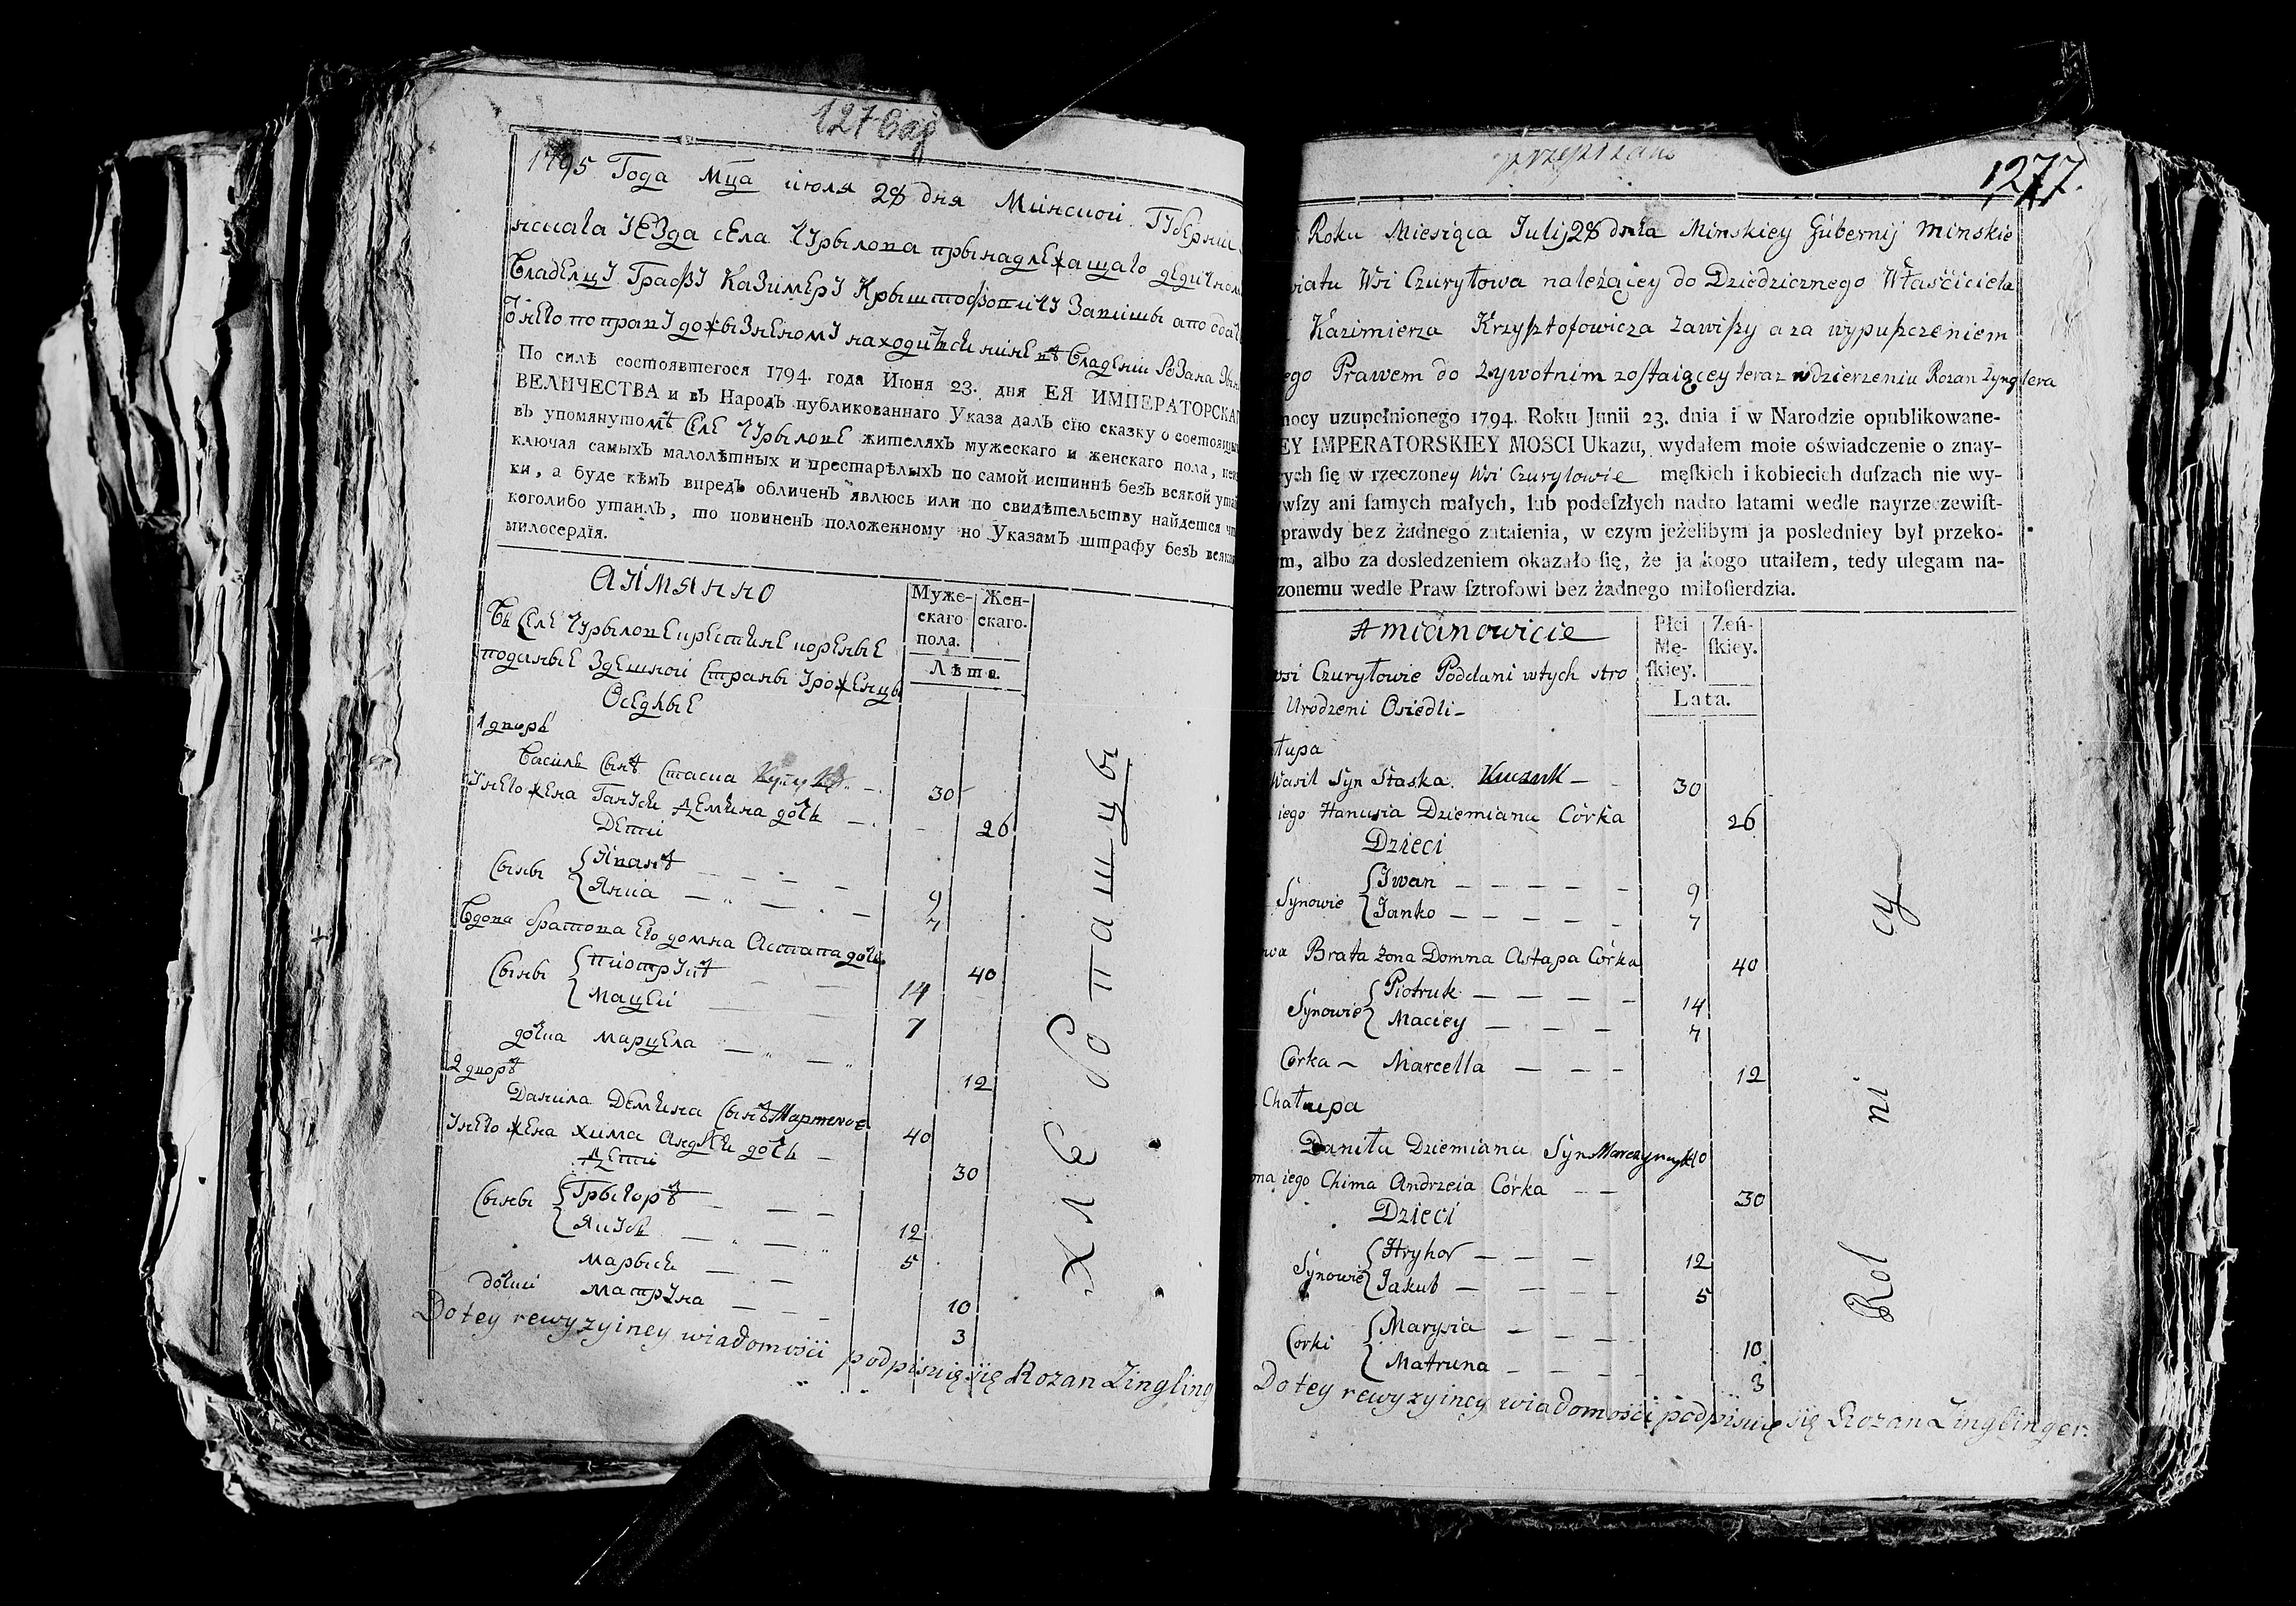 1795 Года Мца июля 28 дня Минской Губерніи
уезда села Чурылова
Казимеру
По силѣ состоявшегося 1794. года Июня 23. дня ЕЯ ИМПЕРАТОРСКА
ВЕЛИЧЕСТВА и въ Народъ публикованнаго Указа далъ сїю сказку о состоящи
въ упомянутомъ Селе Чурылове жителяхъ мужескаго и женскаго пола,
ключая самыхъ малолѣтныхъ и престарѣлыхъ по самой истиннѣ безъ всякой ута
ки, а буде кѣмъ впредь обличенъ явлюсь или по свидѣтельству найдется
коголибо утаилъ, то повиненъ положенному по Указамъ штрафу безъ всяка
милосердїя.
Муже- Жен-
скаго скаго.
пола.
Лѣта.
Оседлые
1 дворъ
Василь Сынъ Стаска 30
жена Гануся Демьяна дочь 26
Дети
Сыны Иванъ 9
Янка 7
Вдова братова его домна Астапа дочь 40
Сыны Піотрукъ 14
Мацей 7
дочка марцела 12
2 дворъ
Данила Демьяна Сынъ 40
жена хима Андрея дочь 30
Дети
Сыны Грыгоръ 12
Якубъ 5
марыся 10
дочки матруна 3
Do tey rewyzyiney wiadomości podpisuię się Rozan Zingling
хлеботашцы
przepisano
1277.
Roku Miesiąca Julij 28 dnia Minskiey Gubernij Minskie
Wsi Czuryłowa należącey do Dziedzicznego Właściciela
Kazimierza Krzysztofowicza Zawiszy a za wypuszczeniem
ego Prawem do Zywotnim zostaiącey teraz w dzierzeniu Rozan Zynglera
mocy uzupełnionego 1794. Roku Junii 23. dnia i w Narodzie opublikowane-
EY IMPERATORSKIEY MOSCI Ukazu, wydałem moie oświadczenie o znay-
ych się w rzeczoney Wsi Czurylowie męſkich i kobiecich duſzach nie wy-
wſzy ani ſamych małych, lub podeſzłych nadto latami wedle nayrzeczewiſt-
prawdy bez żadnego zataienia, w czym jeżelibym ja posledniey był przeko-
m, albo za dosledzeniem okazało się, że ja kogo utaiłem, tedy ulegam na-
zonemu wedle Praw ſztrofowi bez żadnego miłoſierdzia.
Amianowicie
Płci Zeń-
Mę- ſkiey.
ſkiey.
Lata.
wsi Czuryłowie Poddani wtych stro
Urodzeni Osiedli
łupa
Wasil Syn Staska 30
iego Hanusia Dziemiana Córka 26
Dzieci
Synowie Iwan 9
Janko 7
wa Brata żona Domna Astapa Córka 40
Synowie Piotruk 14
Maciey 7
Córka Marcella 12
Chałupa
Daniła Dziemiana Syn 40
ona iego Chima Andrzeia Córka 30
Dzieci
Synowie Hryhor 12
Jakub 5
Corki Marysia 10
Matruna 3
Do tey rewyzyiney wiadomości podpisuię się Rozan Zinglinger
Rolnicy